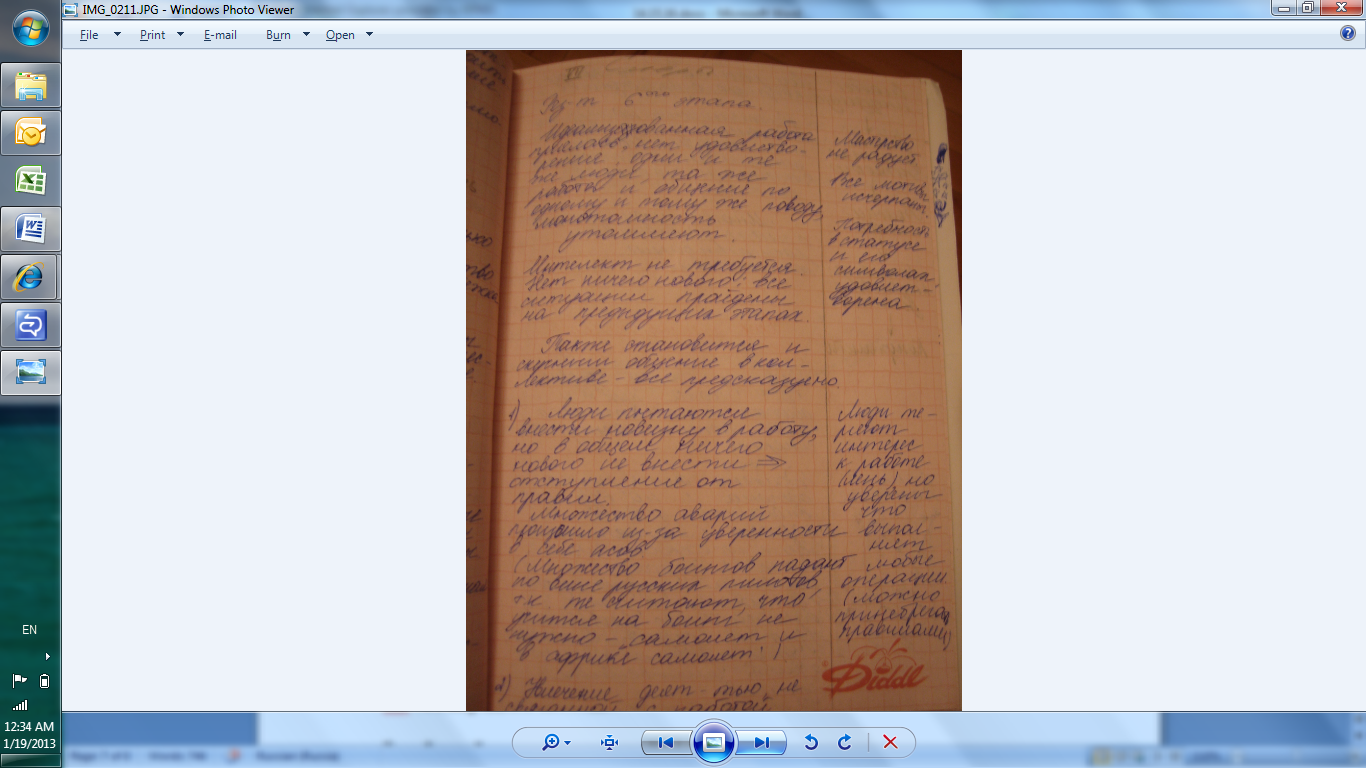 IMG_0211.JPG - Windows Photo Viewer
File Print E-mail Burn Open
6 этапа.
работа
приелась, нет удовлетво-
рения одни и те
же люди та же
работа и общение по
одному и тому же поводу,
монотонность
утомляют.
Интелект не требуется.
Нет ничего нового, все
ситуации пройдены
на предидущих этапах.
Также становится и
скучным общение в кол-
лективе - все предсказуемо.
1) Люди пытаются
внести новизну в работу,
но в общем, ничего
нового не внести ⇒
отступление от
правил.
Множество аварий
произошло из-за уверенности
в себе асов
(Множество боингов падают
по вине русских пилотов,
т.к те считают, что
учится на боинг не
нужно - самолет и
в африке самолет.)
2) Увлечение деят-тью не
связанной с работой
Мастерство
не радует
Все мотивы
исчерпаны
Потребность
в статусе
и его
символах
удовлет-
ворена
Люди те-
ряют
интерес
к работе
(лень) но
уверены
что
выпол-
нят
любые
операции
(можно
принебрегать
правилами)
Diddl
EN
12:34 AM
1/19/2013